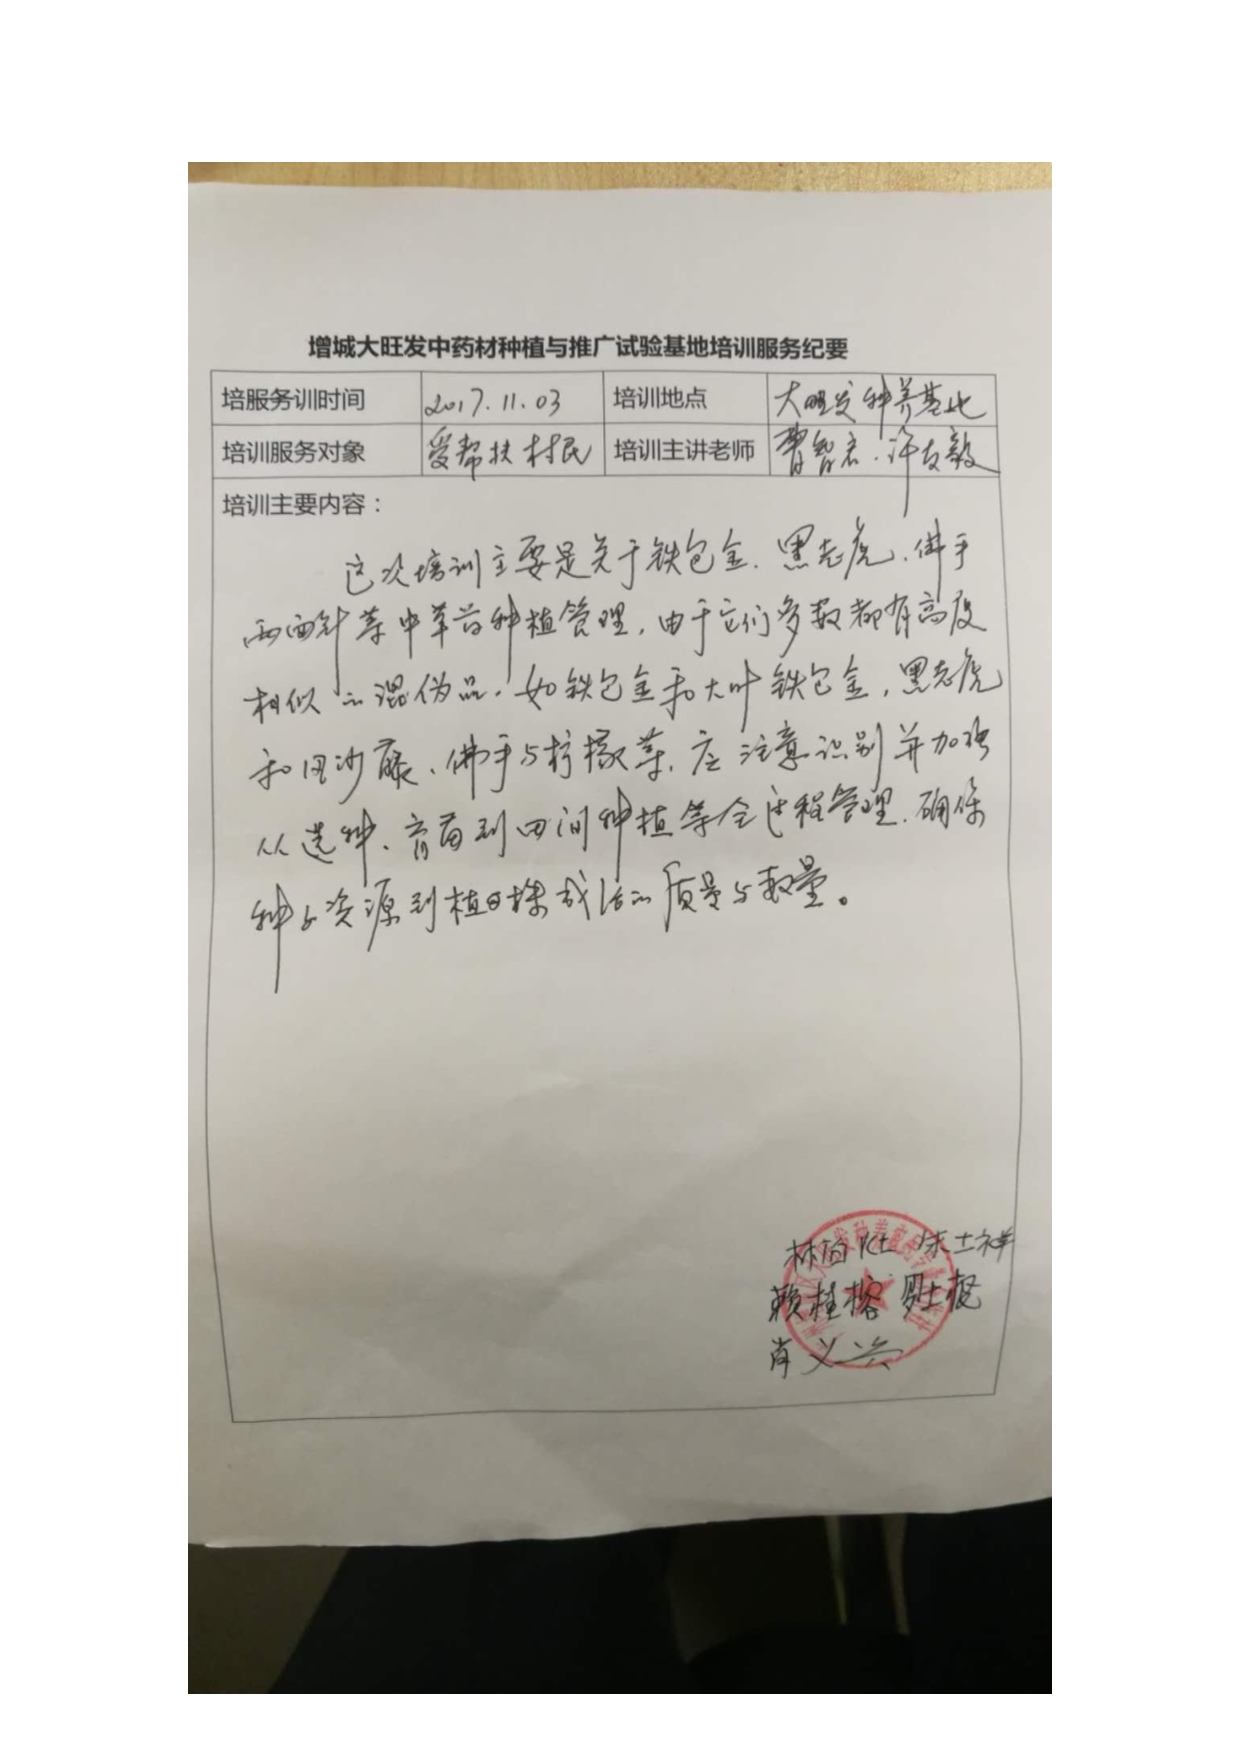 增城大旺发中药材种植与推广试验基地培训服务纪要
培服务训时间 2017.11.03 培训地点 大旺发种养基地
培训服务对象 受帮扶村民 培训主讲老师 曹智友、许友毅
培训主要内容：
这次培训主要是关于铁包金、黑老虎、佛手
两面针等中草药种植管理，由于它们多数都有高度
相似的混伪品，如铁包金和大叶铁包金，黑老虎
和风沙藤、佛手与枸橼等，应注意识别并加强
从选种、育苗到田间种植等全过程管理，确保
种子资源到植株成活的质量与数量。
林 陈士祥
赖桂榕
肖义兴